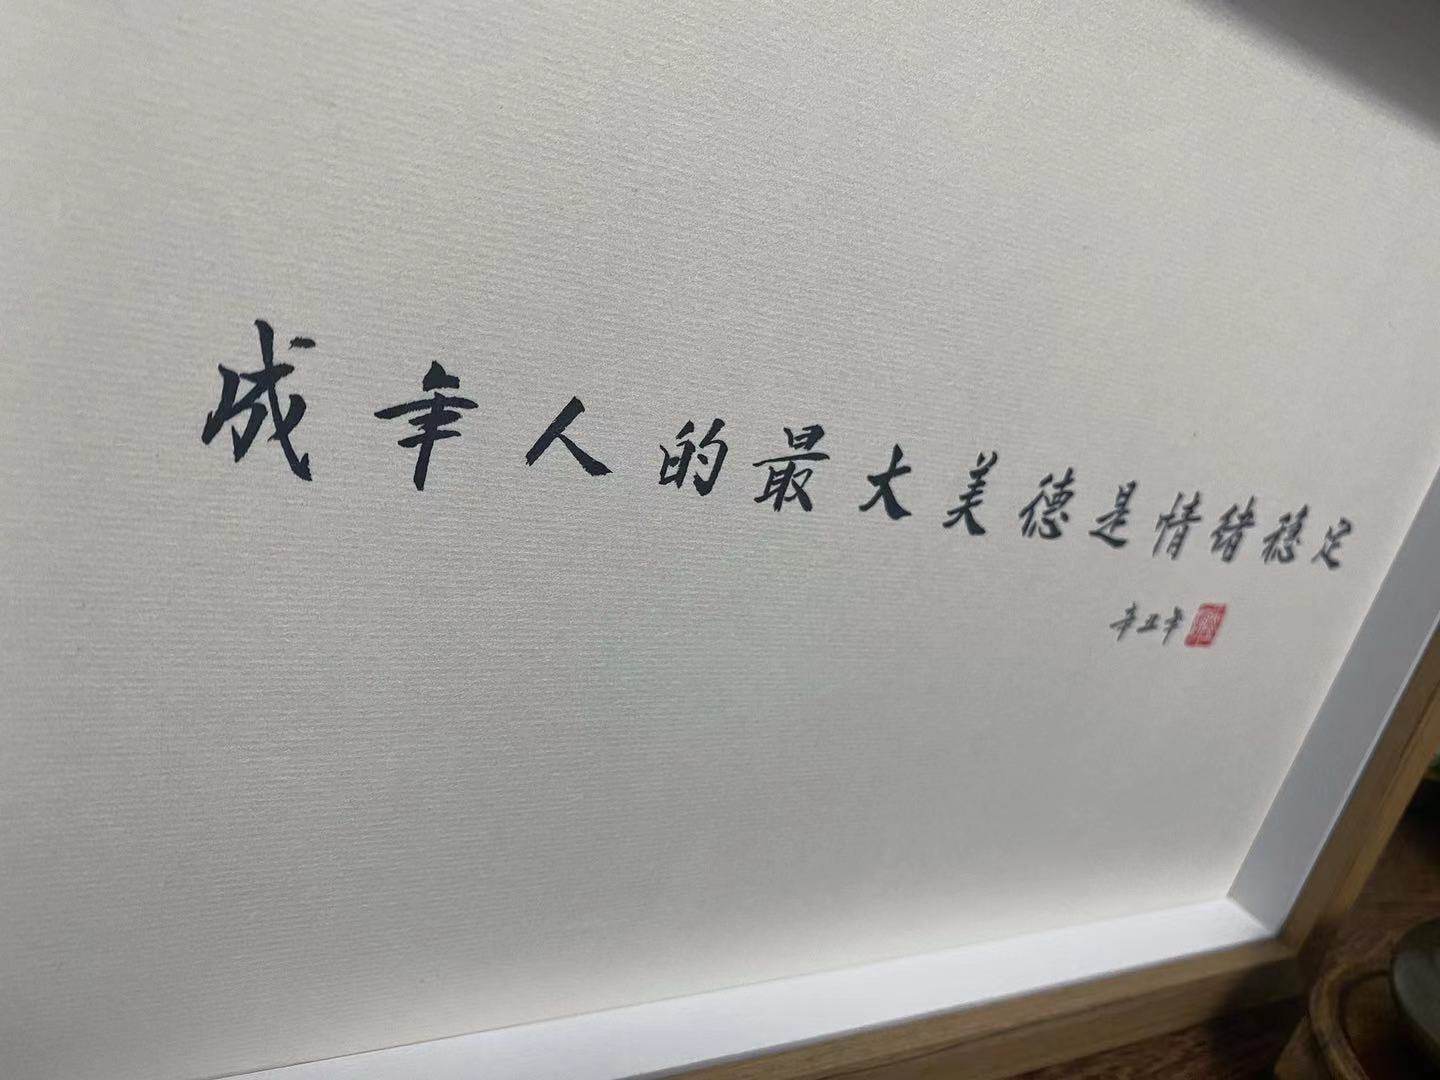 成年人的最大美德是情绪稳定
辛丑年